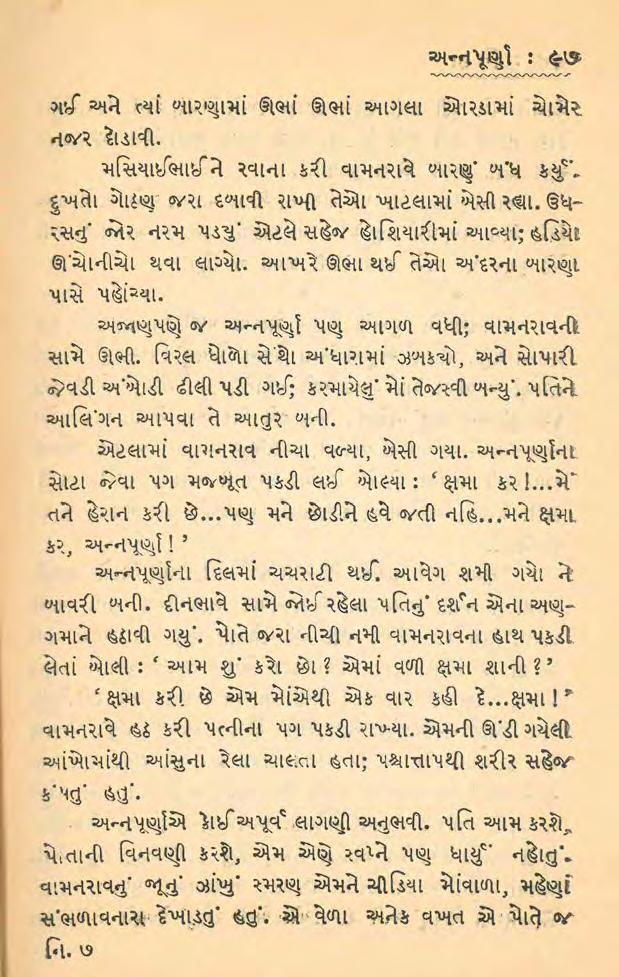 અન્નપૂર્ણા : ૯૭
ગઈ અને ત્યાં બારણામાં ઊભાં ઊભાં આગલા ઓરડામાં ચોમેર
નજર દોડાવી.
મસિયાઈભાઈને રવાના કરી વામનરાવે બારણું બંધ કર્યું.
દુખતો ગોઠણ જરા દબાવી રાખી તેઓ ખાટલામાં બેસી રહ્યા. ઉધ-
રસનું જોર નરમ પડયું એટલે સહેજ હોશિયારીમાં આવ્યા; હડિયો
ઊંચોનીચો થવા લાગ્યો. આખરે ઊભા થઈ તેઓ અંદરના બારણા
પાસે પહોંચ્યા.
અજાણપણે જ અન્નપૂર્ણા પણ આગળ વધી; વામનરાવની
સામે ઊભી. વિરલ ધોળો સેંથો અંધારામાં ઝબકયો, અને સોપારી
જેવડી અંબોડી ઢીલી પડી ગઈ; કરમાયેલું મોં તેજસ્વી બન્યું. પતિને
આલિંગન આપવા તે આતુર બની.
એટલામાં વામનરાવ નીચા વળ્યા, બેસી ગયા. અન્નપૂર્ણાના
સોટા જેવા પગ મજબૂત પકડી લઈ બોલ્યા : ‘ ક્ષમા કર !...મેં
તને હેરાન કરી છે...પણ મને છોડીને હવે જતી નહિ...મને ક્ષમા
કર, અન્નપૂર્ણા ! ’
અન્નપૂર્ણાના દિલમાં ચચરાટી થઈ. આવેગ શમી ગયો ને
બાવરી બની. દીનભાવે સામે જોઈ રહેલા પતિનું દર્શન એના અણ-
ગમાને હઠાવી ગયું. પોતે જરા નીચી નમી વામનરાવના હાથ પકડી
લેતાં બોલી : ‘ આમ શું કરો છો ? એમાં વળી ક્ષમા શાની ? ’
‘ ક્ષમા કરી છે એમ મોંએથી એક વાર કહી દે...ક્ષમા ! ’
વામનરાવે હઠ કરી પત્નીના પગ પકડી રાખ્યા. એમની ઊંડી ગયેલી
આંખોમાંથી આંસુના રેલા ચાલતા હતા; પશ્ચાત્તાપથી શરીર સહેજ
કંપતું હતું.
અન્નપૂર્ણાએ કોઈ અપૂર્વ લાગણી અનુભવી. પતિ આમ કરશે,
પોતાની વિનવણી કરશે, એમ એણે સ્વપ્ને પણ ધાર્યું નહોતું.
વામનરાવનું જૂનું ઝાંખું સ્મરણ એમને ચીડિયા મોંવાળા, મહેણાં
સંભળાવનારા દેખાડતું હતું. એ વેળા અનેક વખત એ પોતે જ
નિ. ૭